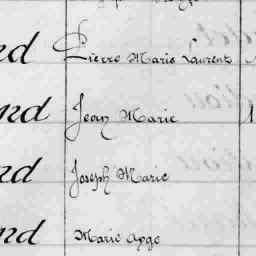 nd Pierre Marie Laurent
nd Jean Marie
nd Joseph Marie
nd Marie Ange